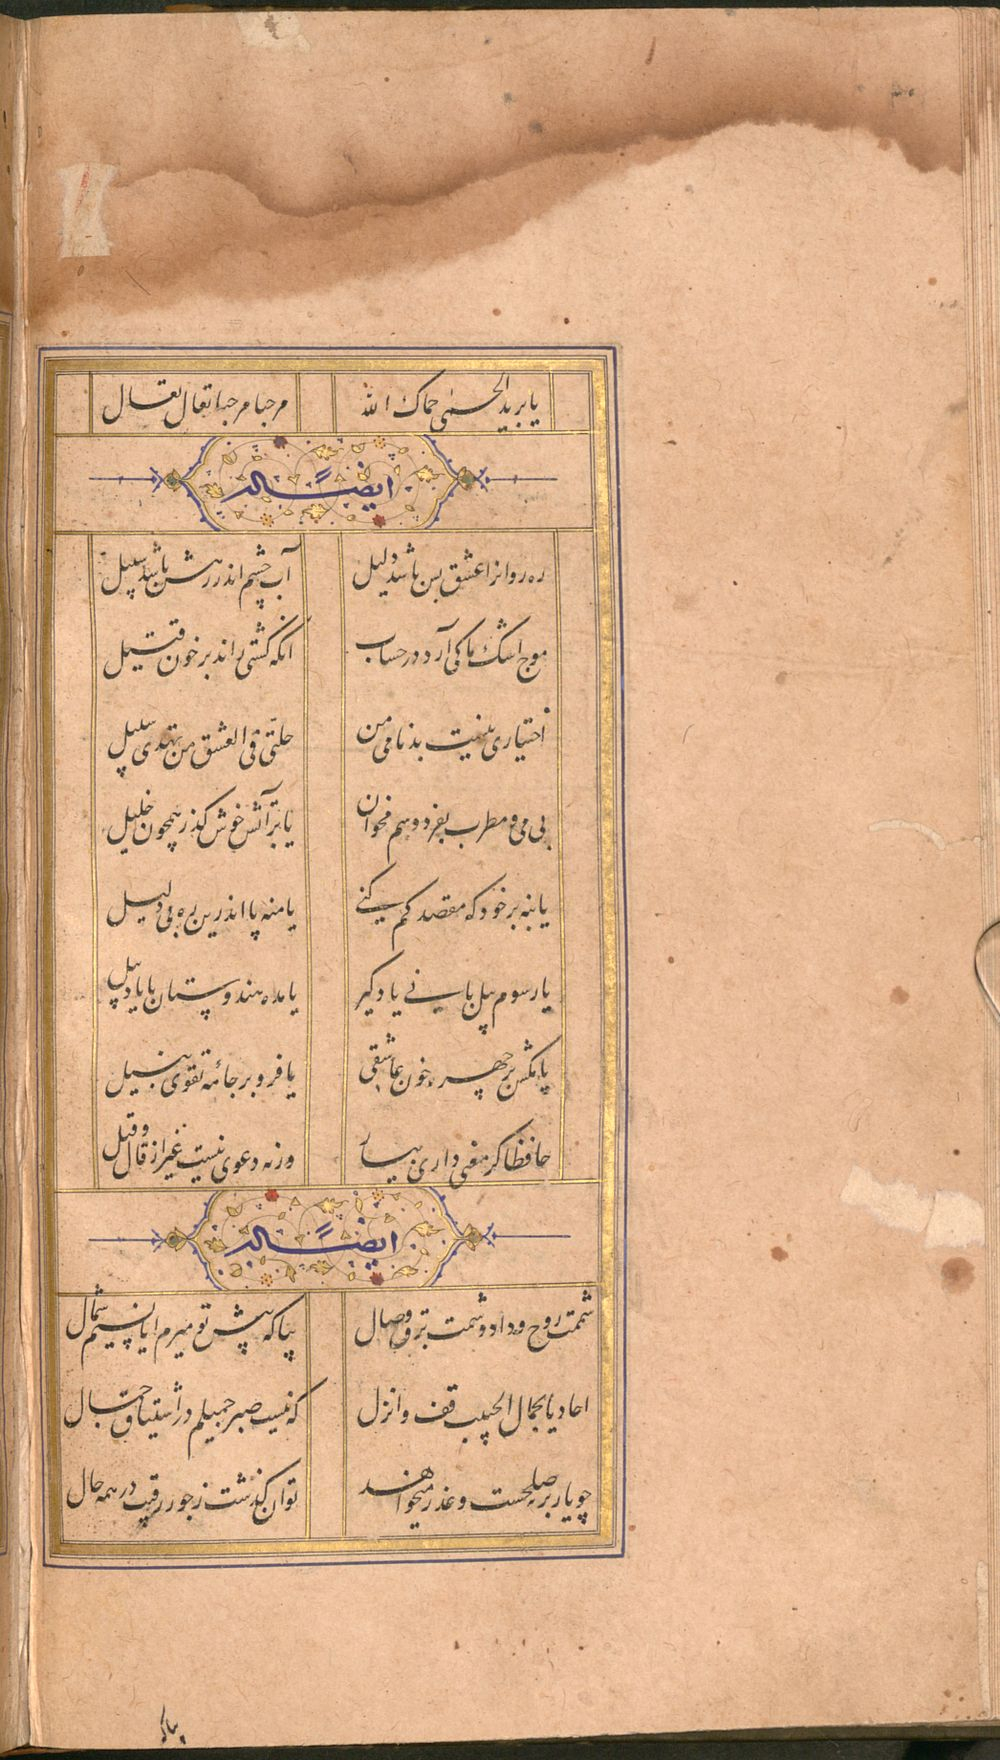 یا برید الحمی حماک الله مرحبا مرحبا تعال تعال
ایضاً له
ره روانرا عشق بس باشد دلیل آب چشم اندر رهش باشد سبیل
موج اشک ما کی آرد در حساب انکه کشتی راند بر خون قتیل
اختیاری نیست بدنامی من ضلّنی فی العشق من یهدی سبیل
بی می و مطرب بفردوسم مخوان
یا بر آتش خوش کذر همچون خلیل
یا بنه بر خود که مقصد کم کنی یا منه پا اندرین ره بی دلیل
یا رسوم پیل بانی یاد کیر یا مده هندوستان با یاد پیل
یا مکش بر چهره خون عاشقی یا فرو بر جامه تقوی به نیل
حافظا کر معنی داری بیار ورنه دعوی نیست غیر از قال و قیل
ایضاً له
شممت روح وداد و شمت برق وصال بیا که پیش تو میرم ایا نسیم شمال
احادیا بجمال الحبیب قف وانزل که نیست صبر جمیلم در اشتیاق جمال
چو یار بر سر صلحست و عذر میخواهد توان کذشت ز جور رقیب در همه حال
بیا که